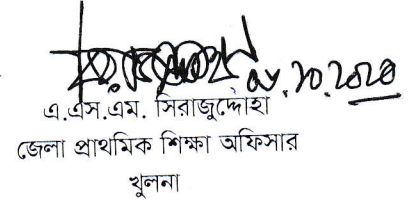 ০৮.১০.২০২০
এ.এস.এম. সিরাজুদ্দোহা
জেলা প্রাথমিক শিক্ষা অফিসার
খুলনা